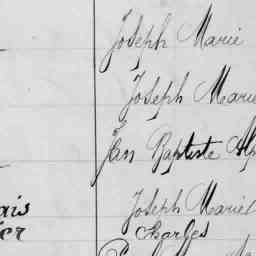 Joseph Marie
Joseph Marie
Jean Baptiste Alp
Joseph Mariel
ais
Charles
er